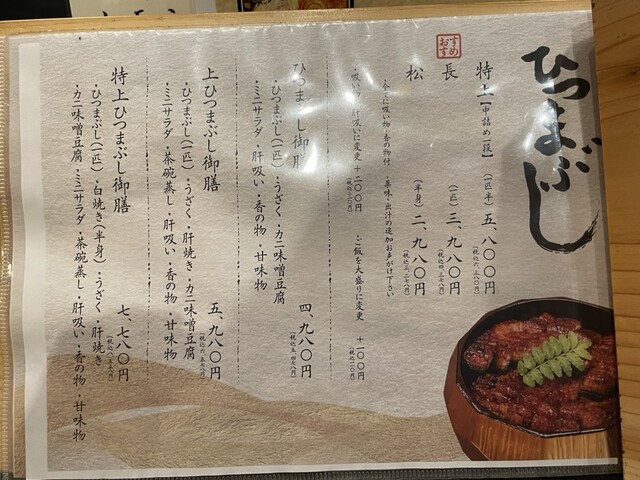 ひつまぶし
特上【中詰め二段】 (一匹半) 五、八〇〇円
(税込六、三八〇円)
おすすめ
長 (一匹) 三、九八〇円
(税込四、三七八円)
松 (半身) 二、九八〇円
(税込三、二七八円)
・全てに吸い物・香の物付 ・薬味・出汁の追加お声がけ下さい
・吸い物 肝吸いに変更 +二〇〇円 ・ご飯を大盛りに変更 +一〇〇円
(税込二二〇円) (税込一一〇円)
ひつまぶし御膳 四、九八〇円
(税込五、四七八円)
・ひつまぶし(一匹)・うざく・カニ味噌豆腐
・ミニサラダ・肝吸い・香の物・甘味物
上ひつまぶし御膳 五、九八〇円
(税込六、五七八円)
・ひつまぶし(一匹)・うざく・肝焼き・カニ味噌豆腐
・ミニサラダ・茶碗蒸し・肝吸い・香の物・甘味物
特上ひつまぶし御膳 七、七八〇円
(税込八、五五八円)
・ひつまぶし(一匹)・白焼き(半身)・うざく・肝焼き
・カニ味噌豆腐・ミニサラダ・茶碗蒸し・肝吸い・香の物・甘味物